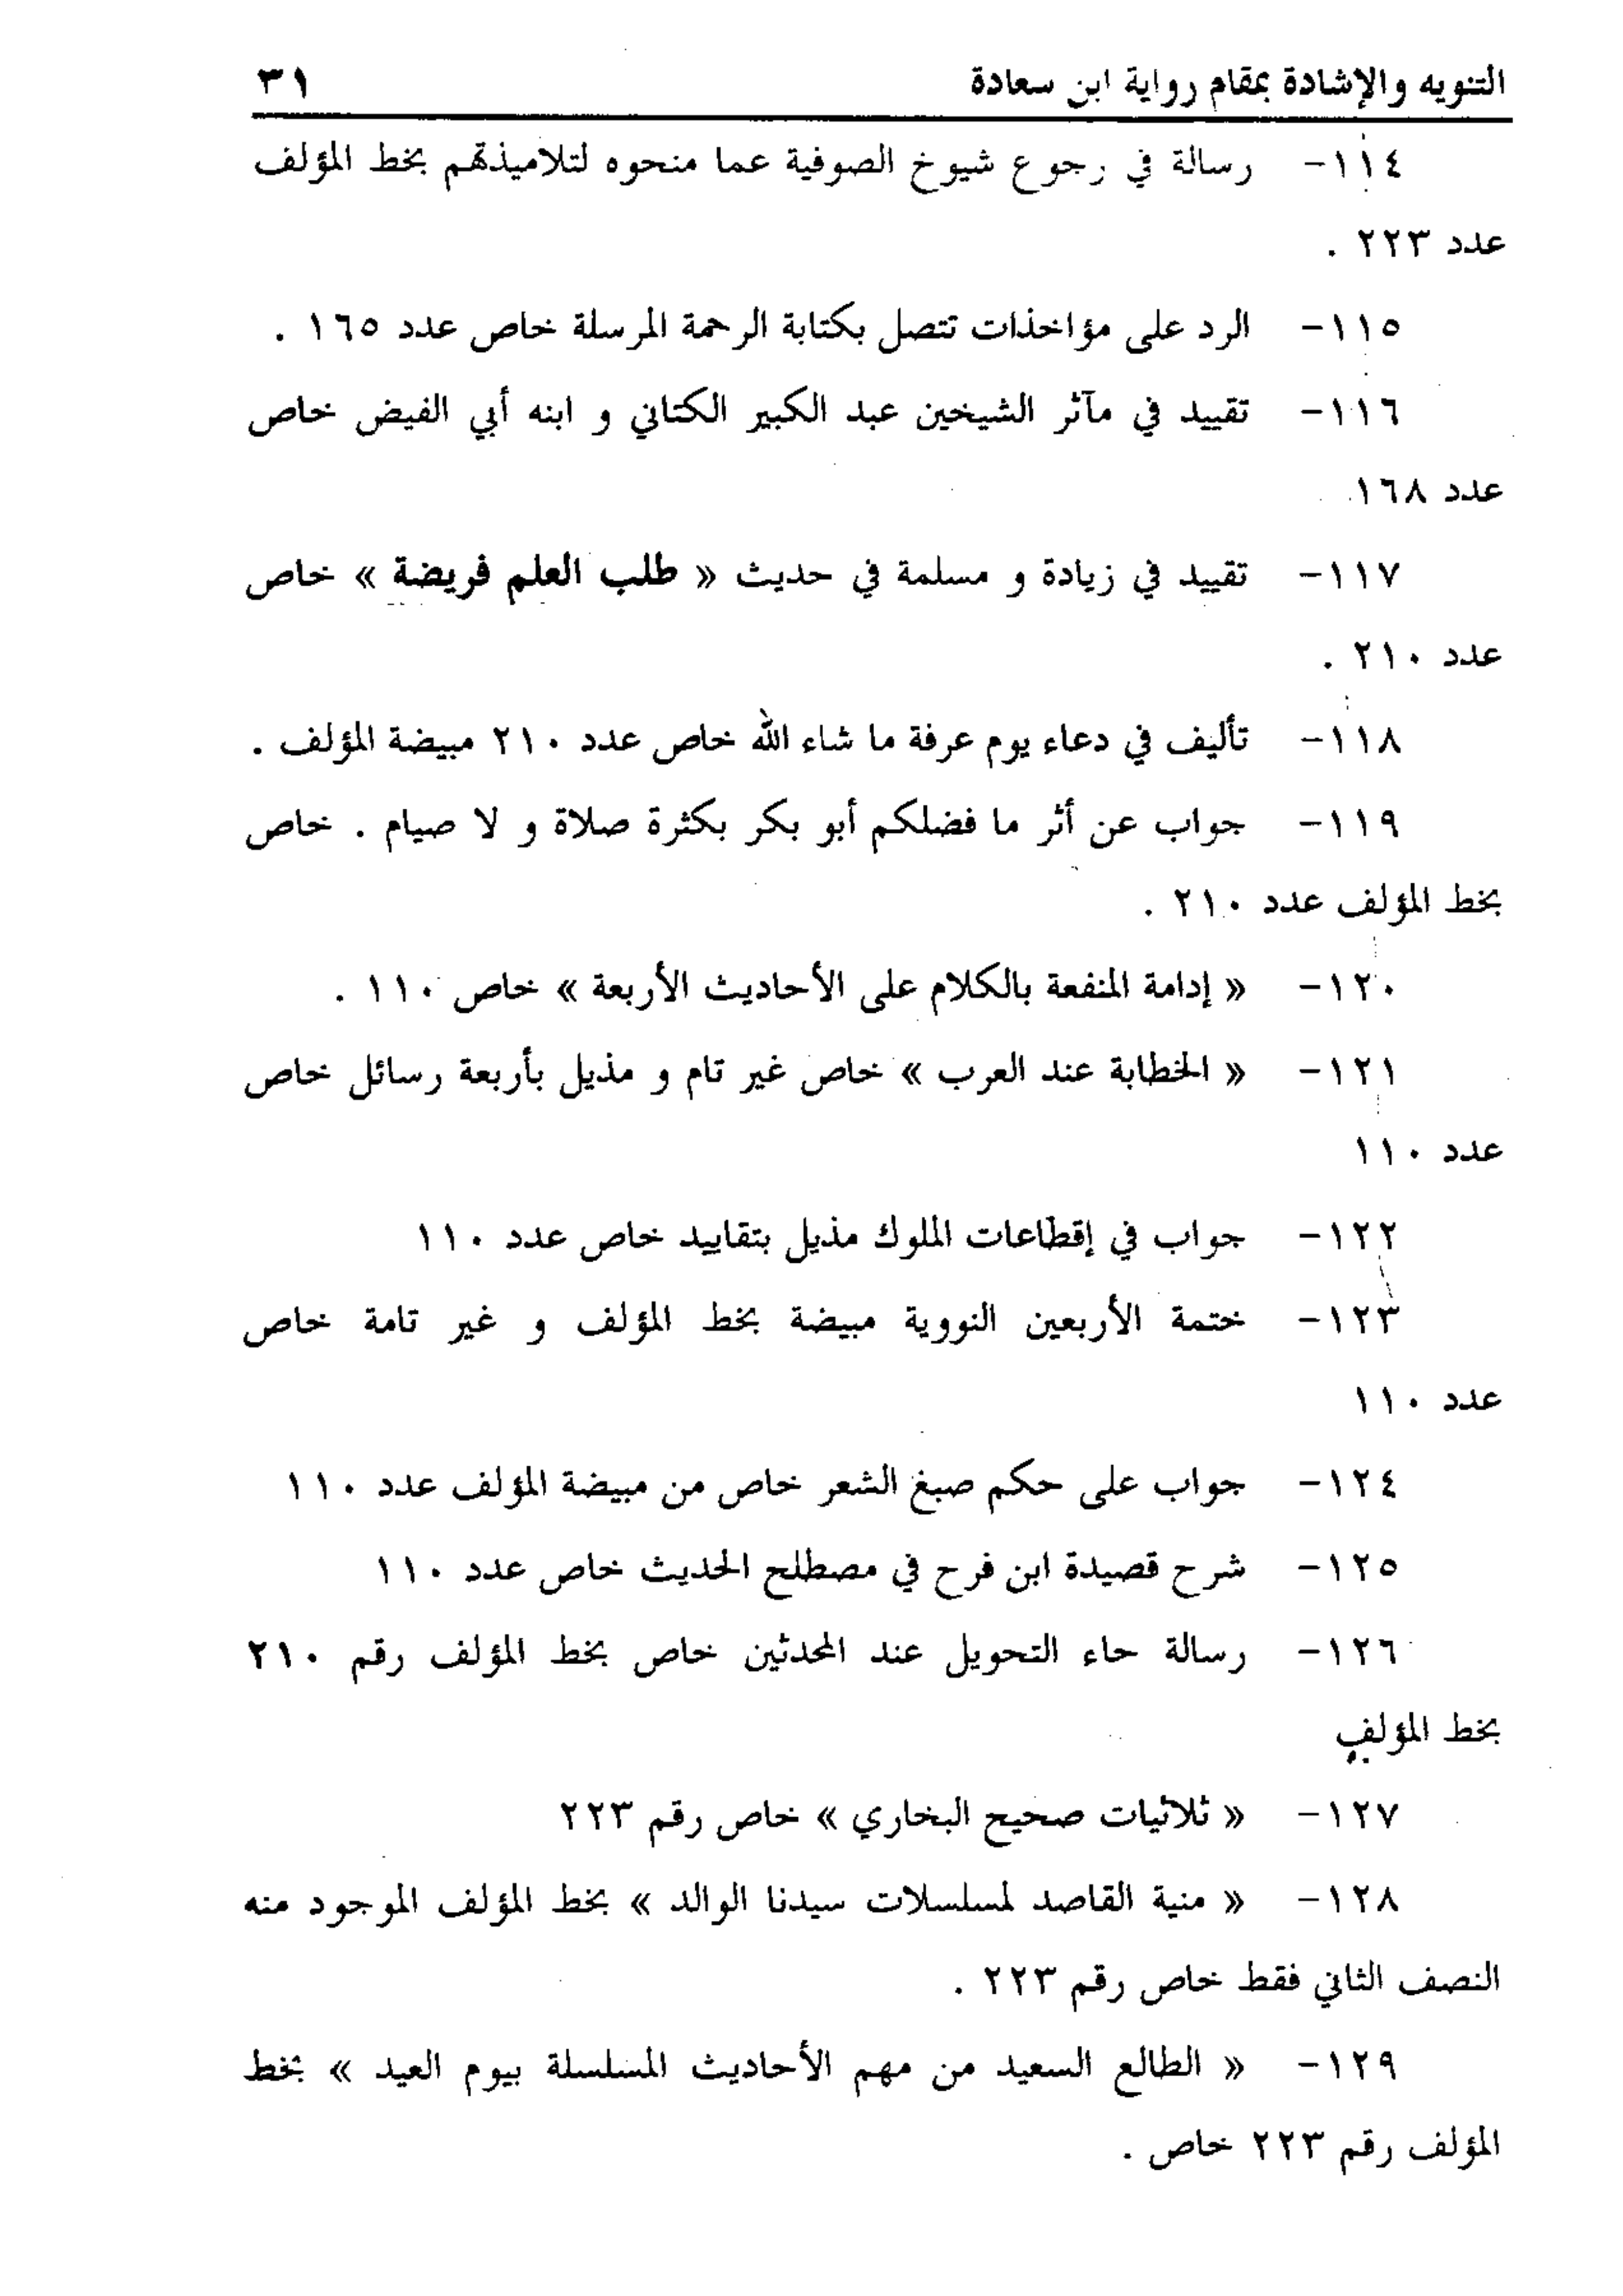 التنويه والإشادة بمقام رواية ابن سعادة ٣١
١١٤- رسالة في رجوع شيوخ الصوفية عما منحوه لتلاميذتهم بخط المؤلف
عدد ٢٢٣ .
١١٥- الرد على مؤاخذات تتصل بكتابة الرحمة المرسلة خاص عدد ١٦٥ .
١١٦- تقييد في مآثر الشيخين عبد الكبير الكتاني و ابنه أبي الفيض خاص
عدد ١٦٨
١١٧- تقييد في زيادة و مسلمة في حديث « طلب العلم فريضة » خاص
عدد ٢١٠ .
١١٨- تأليف في دعاء يوم عرفة ما شاء الله خاص عدد ٢١٠ مبيضة المؤلف .
١١٩- جواب عن أثر ما فضلكم أبو بكر بكثرة صلاة و لا صيام . خاص
بخط المؤلف عدد ٢١٠ .
١٢٠- « إدامة المنفعة بالكلام على الأحاديث الأربعة » خاص ١١٠ .
١٢١- « الخطابة عند العرب » خاص غير تام و مذيل بأربعة رسائل خاص
عدد ١١٠
١٢٢- جواب في إقطاعات الملوك مذيل بتقاييد خاص عدد ١١٠
١٢٣- ختمة الأربعين النووية مبيضة بخط المؤلف و غير تامة خاص
عدد ١١٠
١٢٤- جواب على حكم صبغ الشعر خاص من مبيضة المؤلف عدد ١١٠
١٢٥- شرح قصيدة ابن فرح في مصطلح الحديث خاص عدد ١١٠
١٢٦- رسالة حاء التحويل عند المحدثين خاص بخط المؤلف رقم ٢١٠
بخط المؤلف
١٢٧- « ثلاثيات صحيح البخاري » خاص رقم ٢٢٣
١٢٨- « منية القاصد لمسلسلات سيدنا الوالد » بخط المؤلف الموجود منه
النصف الثاني فقط خاص رقم ٢٢٣ .
١٢٩- « الطالع السعيد من مهم الأحاديث المسلسلة بيوم العيد » بخط
المؤلف رقم ٢٢٣ خاص .